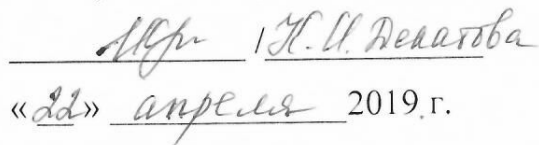 / Н. И. Денатова
«22» апреля 2019 г.